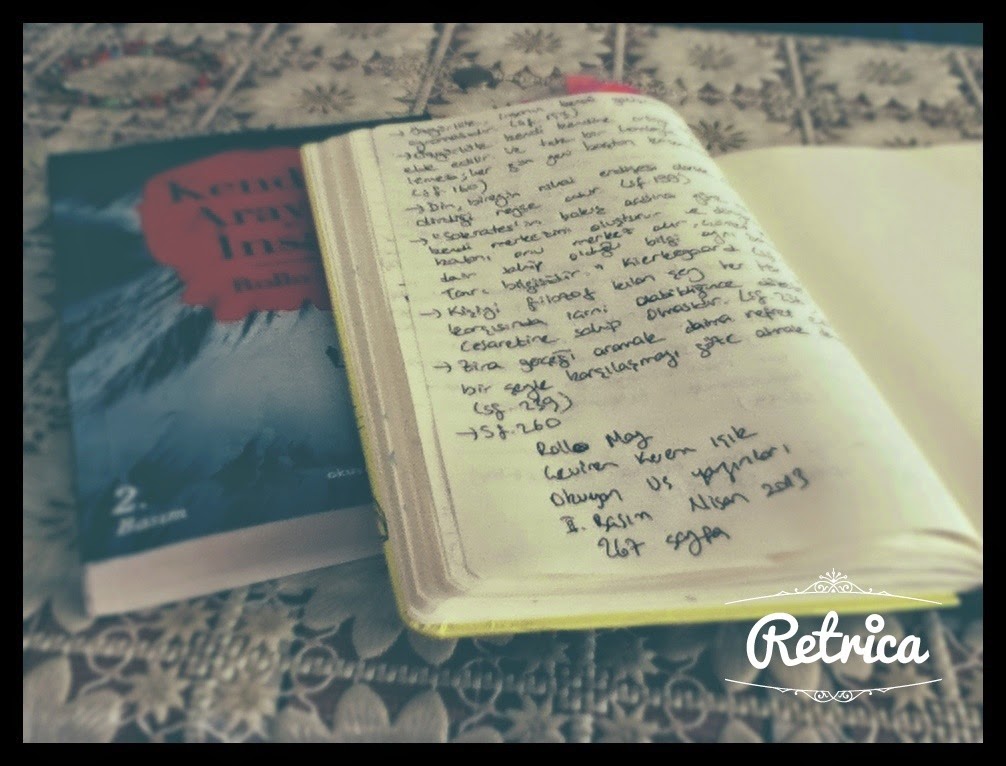 Kend
Aray
İns
Rollo
2.
Basım
oku
→ Özgürlük, insanın kendi
(sf. 153)
→ Özgürlük kendi kendine
elde edilir ve tek bir
her gün yeni baştan
(sf. 160)
→ Din, bireyin nihai endişesi
olmadığı neyse odur (sf 199)
→ "Sokrates'in bakış açısına göre
kendi merkezini oluşturur ve
onu merkez alır,
dair sahip olduğu bilgi
Tanrı bilgisidir." Kierkegaard
→ Kişiyi filozof kılan şey her
karşısında olabildiğince
cesaretine sahip olmasıdır. (sf. 236
→ Zira gerçeği aramak daima nefret
bir şeyle karşılaşmayı göze almak
(sf. 239)
→ Sf. 260
Rollo May
Çeviren Kerem Işık
Okuyan Us yayınları,
II. Basım Nisan 2013
267 sayfa
Retrica